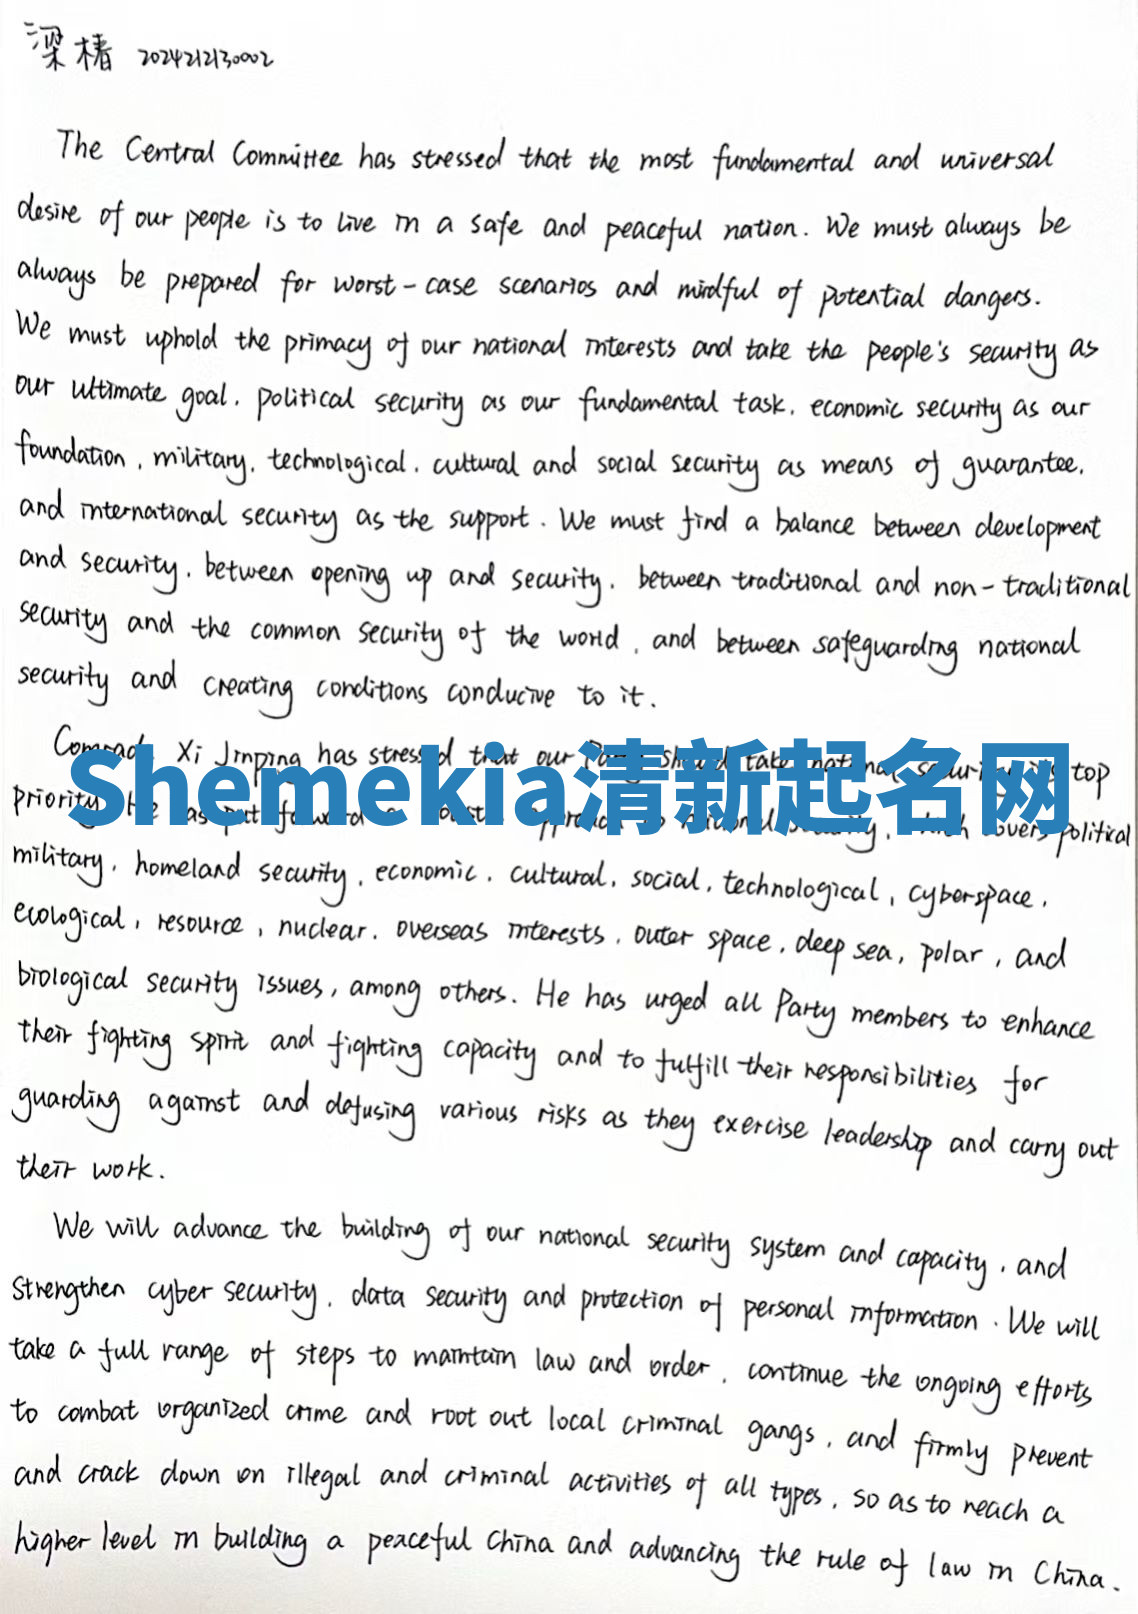 梁椿 2024212130002
The Central Committee has stressed that the most fundamental and universal
desire of our people is to live in a safe and peaceful nation. We must always be
always be prepared for worst-case scenarios and mindful of potential dangers.
We must uphold the primacy of our national interests and take the people's security as
our ultimate goal, political security as our fundamental task, economic security as our
foundation, military, technological, cultural and social security as means of guarantee,
and international security as the support. We must find a balance between development
and security, between opening up and security, between traditional and non-traditional
security and the common security of the world, and between safeguarding national
security and creating conditions conducive to it.
Xi Jinping has stressed that our take national top
Shemekia清新起名网
priority. He has put forward approach to national security, which covers political
military, homeland security, economic, cultural, social, technological, cyberspace,
ecological, resource, nuclear, overseas interests, outer space, deep sea, polar, and
biological security issues, among others. He has urged all Party members to enhance
their fighting spirit and fighting capacity and to fulfill their responsibilities for
guarding against and defusing various risks as they exercise leadership and carry out
their work.
We will advance the building of our national security system and capacity, and
strengthen cyber security, data security and protection of personal information. We will
take a full range of steps to maintain law and order, continue the ongoing efforts
to combat organized crime and root out local criminal gangs, and firmly prevent
and crack down on illegal and criminal activities of all types, so as to reach a
higher level in building a peaceful China and advancing the rule of law in China.